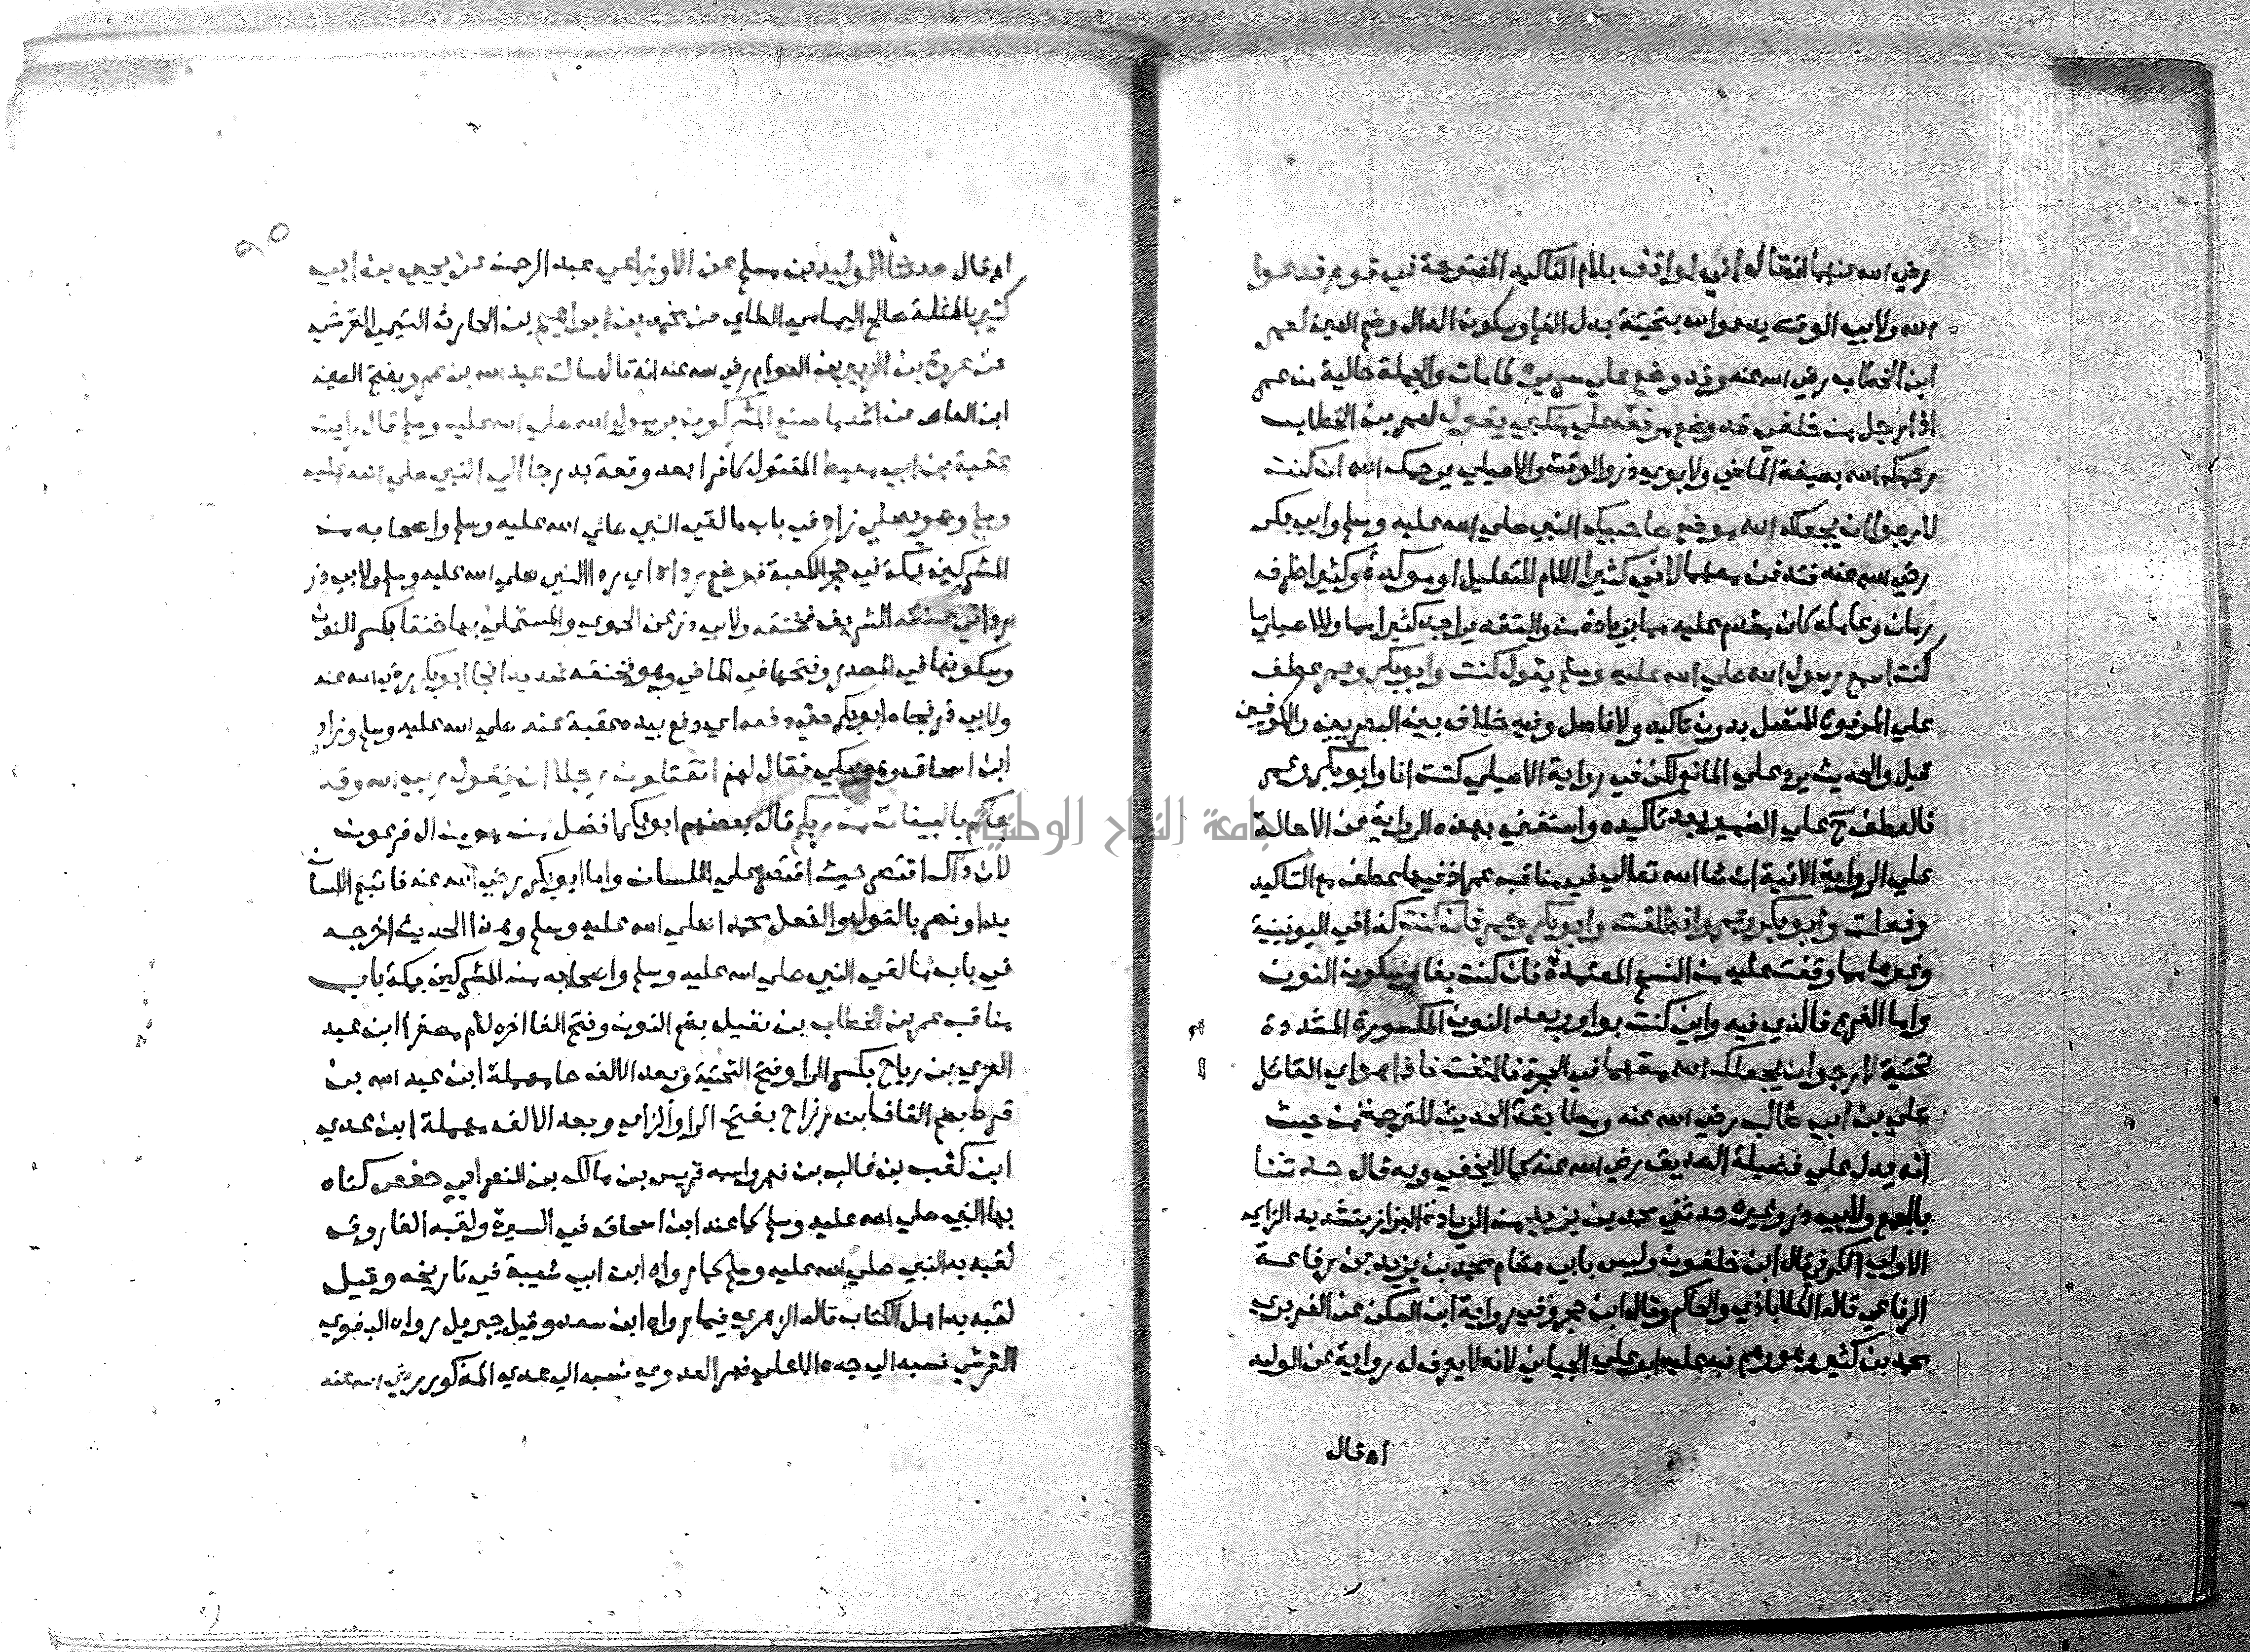 رضي الله عنهما انه قال اني لواقف بلام التاكيد المفتوحة في قوم فدعوا
الله ولابي الوقت يدعوا الله بتحتية بدل الفا وسكون الدال وضم العين لعمر
ابن الخطاب رضي الله عنه وقد وضع علي سريره لما مات والجملة حالية من عمر
اذا رجل من خلفي قد وضع مرفقه علي منكبي يقول لعمر بن الخطاب
رحمك الله بصيغة الماضي ولابوي ذر والوقت والاصيلي يرحمك الله ان كنت
لارجو ان يجعلك الله مع صاحبيك النبي صلي الله عليه وسلم وابي بكر
رضي الله عنه فدفن معهما لاني كثيرا اللام للتعليل او موكدة وكثيرا ظرف
زمان وعامله كان مقدم عليه ما بزيادة من والتقه يراجد كثيرا ما وللاصيلي مما
كنت اسمع رسول الله صلي الله عليه وسلم يقول كنت وابوبكر وعمر عطف
علي المرفوع المتصل بدون تاكيد ولا فاصل وفيه خلاف بين البصريين والكوفيين
قيل والحديث يرد علي المانع لكن في رواية الاصيلي كنت انا وابوبكر وعمر
فالعطف ح علي الضمير بعد تاكيده واستغني بهذه الرواية عن الاحالة
علي الرواية الاتية ان شا الله تعالي في مناقب عمر اذ فيها عطف مع التاكيد
وفعلت وابوبكر وعمر وانطلقت وابوبكر وعمر فان كنت كذا في اليونينية
وغيرها مما وقفت عليه من النسخ المعتمدة فان كنت بفا وسكون النون
واما الفرع فالذي فيه واني كنت بواو وبعد النون المكسورة المشددة
تحتية لارجو ان يجعلك الله معهما في الحجرة فالتفت فاذا هو اي القائل
علي بن ابي طالب رضي الله عنه ومطابقة الحديث للترجمة من حيث
انه يدل علي فضيلة الصديق رضي الله عنه كما لا يخفي وبه قال حدثنا
بالجمع ولابي ذر وغيره حدثني محمد بن يزيد من الزيادة البزاز بتشديد الزاي
الاولي الكوفي قال ابن خلفون وليس بابي هشام محمد بن يزيد بن رفاعة
الرفاعي قاله الكلاباذي والحاكم وقال ابن حجر وفي رواية ابن السكن عن الفربري
محمد بن كثير وهو وهم نبه عليه ابو علي الجياني لانه لا يعرف له رواية عن الوليد
اه قال
٩٥
اه قال حدثنا الوليد بن مسلم عن الاوزاعي عبد الرحمن عن يحيي بن ابي
كثير بالمثلثة صالح اليمامي الطاي عن محمد بن ابراهيم بن الحارث التيمي القرشي
عن عروة بن الزبير بن العوام رضي الله عنه انه قال سالت عبد الله بن عمرو بفتح العين
ابن العاص عن اشد ما صنع المشركون برسول الله صلي الله عليه وسلم قال رايت
عقبة بن ابي معيط المقتول كافرا بعد وقعة بدر جا الي النبي صلي الله عليه
وسلم وهو يصلي زاد في باب ما لقي النبي صلي الله عليه وسلم واصحابه من
المشركين بمكة في حجر الكعبة فوضع رداه اي ردا النبي صلي الله عليه وسلم ولابي ذر
رداه في عنقه الشريف فخنقه ولابي ذر عن الحموي والمستملي بها خنقا بكسر النون
وسكونها في المصدر وفتحها في الماضي وهو فخنقه شديدا فجا ابوبكر رضي الله عنه
ولابي ذر فجاه ابوبكر حتي دفعه اي دفع بيده عقبة عنه صلي الله عليه وسلم وزاد
ابن اسحاق وهو يبكي فقال لهم اتقتلون رجلا ان يقول ربي الله وقد
جاكم بالبينات من ربكم قال بعضهم ابوبكر افضل من مومن ال فرعون
لان ذاك اقتصر حيث اقتصر علي اللسان واما ابوبكر رضي الله عنه فاتبع اللسان
يدا ونصر بالقول والفعل محمدا صلي الله عليه وسلم وهذا الحديث اخرجه
في باب ما لقي النبي صلي الله عليه وسلم واصحابه من المشركين بمكة باب
مناقب عمر بن الخطاب بن نفيل بضم النون وفتح الفا اخره لام مصغرا ابن عبد
العزي بن رياح بكسر الرا وفتح التحتية وبعد الالف حا مهملة ابن عبد الله بن
قرط بضم القاف ابن رزاح بفتح الرا والزاي وبعد الالف مهملة ابن عدي
ابن كعب بن غالب بن فهر واسمه قريش بن مالك بن النضر ابي حفص كناه
بها النبي صلي الله عليه وسلم كما عند ابن اسحاق في السيرة ولقبه الفاروق
لقبه به النبي صلي الله عليه وسلم كما رواه ابن ابي شيبة في تاريخه وقيل
لقبه به اهل الكتاب قاله الزهري فيما رواه ابن سعد وقيل جبريل رواه البغوي
القرشي نسبه الي جده الاعلي فهر العدوي نسبه الي عدي المذكور رضي الله عنه
جامعة النجاح الوطنية